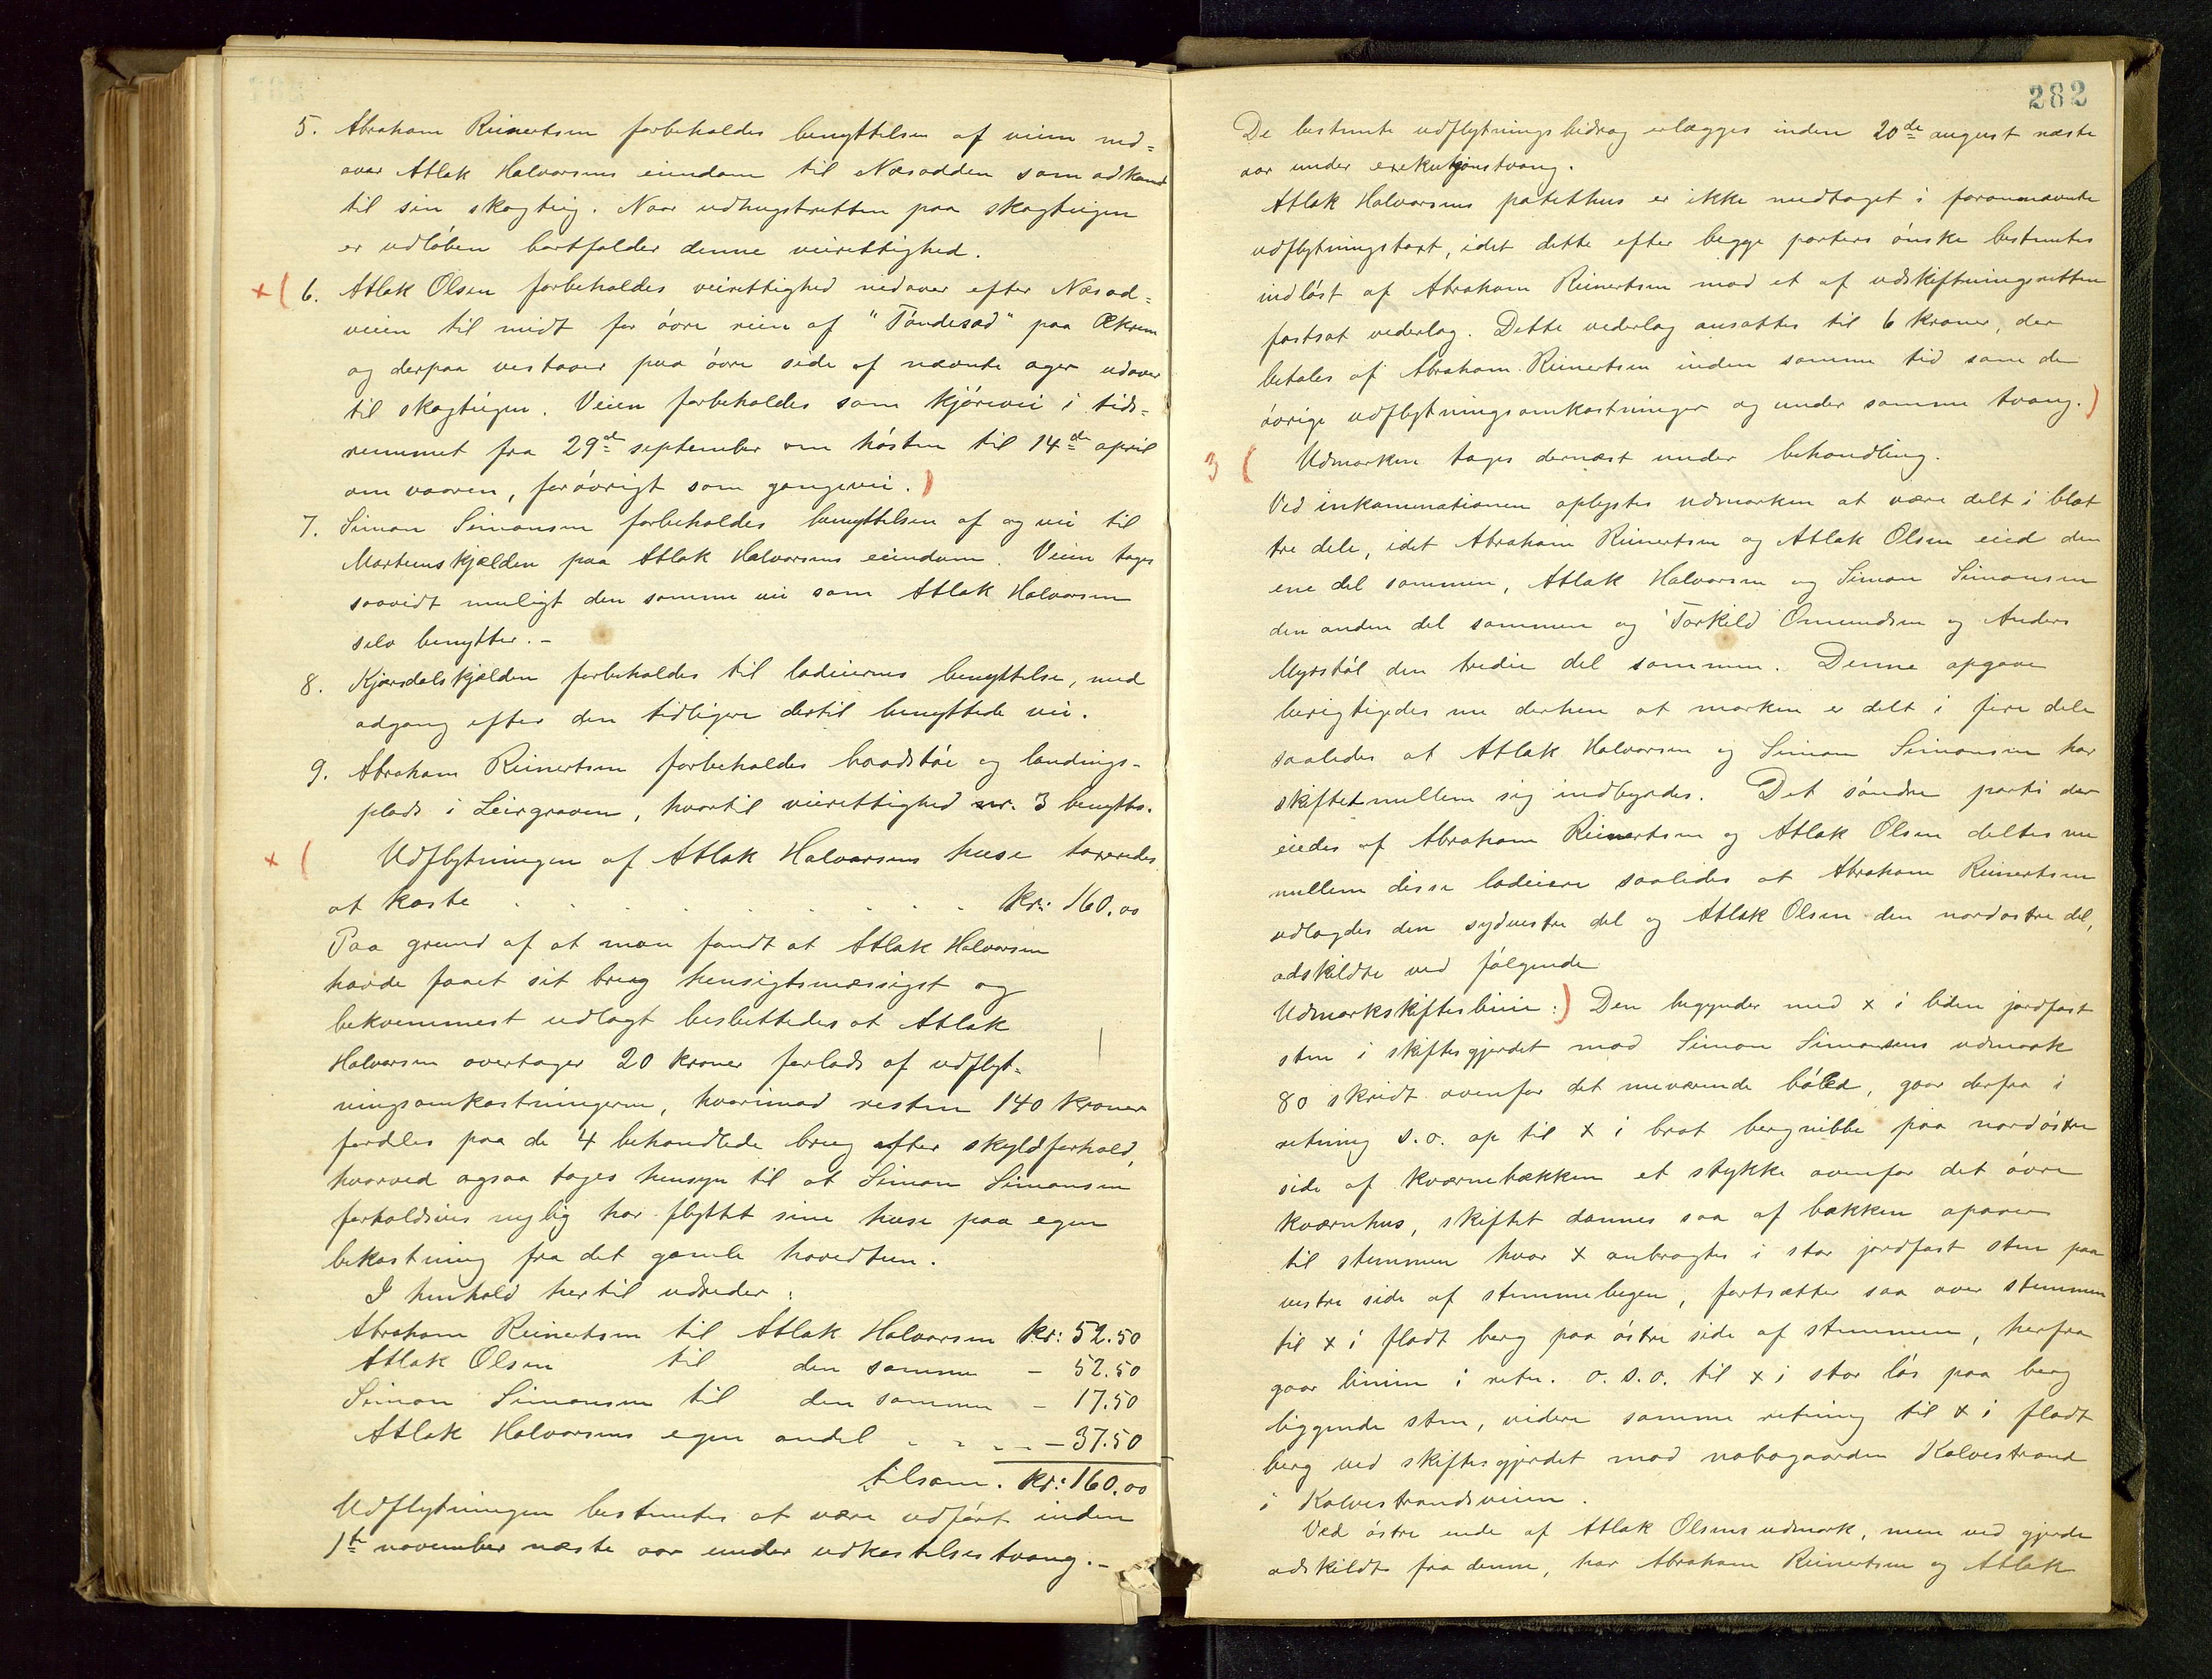 5. Abraham Reinertsen forbeholdes benyttelsen af veien ned=
over Atlak Halvorsens eiendom til Næsodden som adkomst
til sin skogteig. Naar udhugstretten paa skogteigen
er udløben bortfalder denne veirettighed.
x ( 6. Atlak Olsen forbeholdes veirettighed nedover efter Næsod=
veien til midt for øvre rein af "Tøndesæd" paa Ækren
og derpaa vestover paa øvre side af nævnte ager udover
til skogteigen. Veien forbeholdes som kjørevei i tids=
rummet fra 29de september om høsten til 14de april
om vaaren, forøvrigt som gangevei. )
7. Simon Simonsen forbeholdes benyttelsen af og vei til
Martenskjælden paa Atlak Halvorsens eiendom. Veien tages
saavidt muligt den samme vei som Atlak Halvorsen
selv benytter. -
8. Kjærsdalskjælden forbeholdes til lodeiernes benyttelse, med
adgang efter den tidligere dertil benyttede vei.
9. Abraham Reinertsen forbeholdes baadstøe og landings-
plads i Leirgraven, hvortil veirettighed nr. 3 benyttes.
x ( Udflytningen af Atlak Halvorsens huse taxeredes
at koste . . . . . . . . . kr: 160.00
Paa grund af at man fandt at Atlak Halvorsen
havde faaet sit brug hensigtsmæssigst og
bekvemmest udlagt besluttedes at Atlak
Halvorsen overtager 20 kroner forlods af udflyt-
ningsomkostningerne, hvorimod resten 140 kroner
fordeles paa de 4 behandlede brug efter skyldforhold,
hvorved ogsaa tages hensyn til at Simon Simonsen
forholdsvis nylig har flyttet sine huse paa egen
bekostning fra det gamle hovedtun.
I henhold hertil udreder:
Abraham Reinertsen til Atlak Halvorsen kr: 52.50
Atlak Olsen til den samme - 52.50
Simon Simonsen til den samme - 17.50
Atlak Halvorsens egen andel - - - - 37.50
tilsam. kr: 160.00
Udflytningen bestemtes at være udført inden
1te november næste aar under udkastelsestvang. -
282
De bestemte udflytningsbidrag erlægges inden 20de august næste
aar under exekutionstvang.
Atlak Halvorsens potethus er ikke medtaget i forannævnte
udflytningstaxt, idet dette efter begge parters ønske bestemtes
indløst af Abraham Reinertsen mod et af udskiftningsretten
fastsat vederlag. Dette vederlag ansattes til 6 kroner, der
betales af Abraham Reinertsen inden samme tid som de
øvrige udflytningsomkostninger og under samme tvang. )
3 ( Udmarken tages dernæst under behandling.
Ved inkaminationen oplystes udmarken at være delt i blot
tre dele, idet Abraham Reinertsen og Atlak Olsen eied den
ene del sammen, Atlak Halvorsen og Simon Simonsen
den anden del sammen og Torkild Omundsen og Anders
Myrstøl den tredie del sammen. Denne opgave
berigtigedes nu derhen at marken er delt i fire dele
saaledes at Atlak Halvorsen og Simon Simonsen har
skiftet mellem sig indbyrdes. Det søndre parti der
eiedes af Abraham Reinertsen og Atlak Olsen deltes nu
mellem disse lodeiere saaledes at Abraham Reinertsen
udlagdes den sydvestre del og Atlak Olsen den nordostre del,
adskildte ved følgende
Udmarkskifteslinie: ) Den begynder med x i liden jordfast
sten i skiftesgjerdet mod Simon Simonsens udmark
80 skridt ovenfor det nuværende bøled, gaar derfra i
retning s.o. op til x i brat bergnibbe paa nordøstre
side af kværnebækken et stykke ovenfor det øvre
kværnhus, skiftet dannes saa af bækken opover
til stemmen hvor x anbragtes i stor jordfast sten paa
vestre side af stemmebugen, fortsætter saa over stemmen
til x i fladt berg paa østre side af stemmen, herfra
gaar linien i retn. o.s.o. til x i stor løs paa berg
liggende sten, videre samme retning til x i fladt
berg ved skiftesgjerdet mod nabogaarden Kalvestrand
i Kalvestrandsveien.
Ved østre ende af Atlak Olsens udmark, men ved gjerde
adskildt fra denne, har Abraham Reinertsen og Atlak